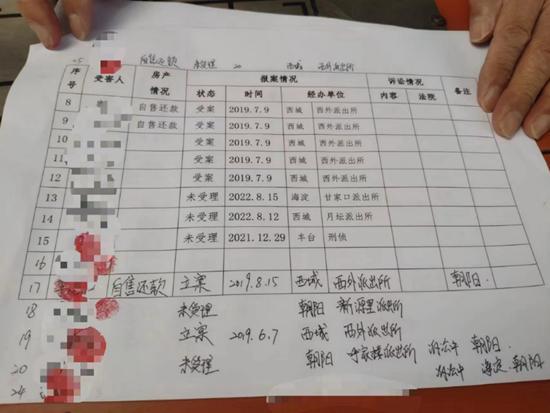 自售还款 未受理 西城 西外派出所
序号 受害人 房产情况 报案情况 诉讼情况 备注
状态 时间 经办单位 内容 法院
8 自售还款 受案 2019.7.9 西城 西外派出所
9 自售还款 受案 2019.7.9 西城 西外派出所
10 受案 2019.7.9 西城 西外派出所
11 受案 2019.7.9 西城 西外派出所
12 受案 2019.7.9 西城 西外派出所
13 未受理 2022.8.15 海淀 甘家口派出所
14 未受理 2022.8.12 西城 月坛派出所
15 未受理 2021.12.29 丰台 刑侦
16
17 自售还款 立案 2019.8.15 西城 西外派出所 朝阳
18 未受理 朝阳 新源里派出所
19 立案 2019.6.7 西城 西外派出所
20 未受理 朝阳 呼家楼派出所 朝阳
24 海淀.朝阳